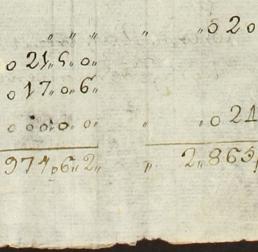 〃 〃 〃 〃 0 2 0
0 21〃 5〃 0〃
0 17〃 0〃 6〃
0 0 0〃 0〃 0〃 〃 〃 0 21
974〃 6〃 2〃 〃 2〃 865〃